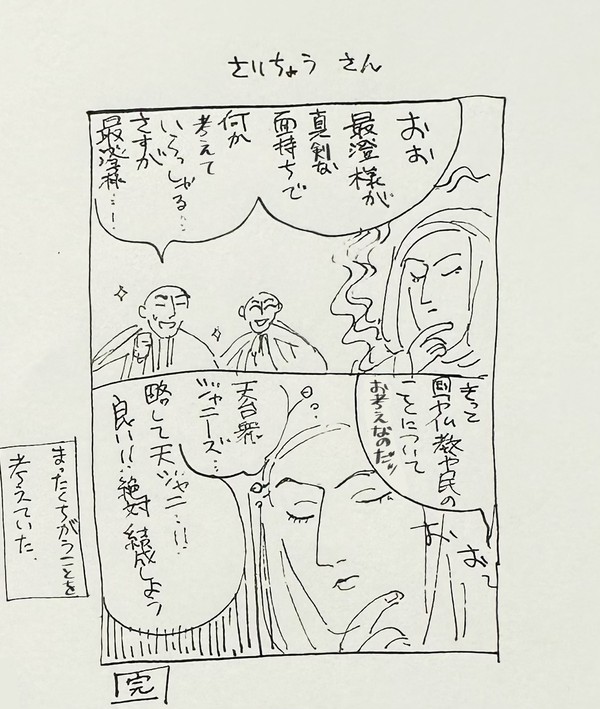 さいちょう さん
おお
最澄様が
真剣な
面持ちで
何か
考えて
いらっしゃる…
さすが
最澄様…!
きっと
国や仏教や民の
ことについて
お考えなのだッ
おお〜
天台宗
ジャニーズ…
略して天ジャニ…!!
良い!!絶対結成しよっ
まったくちがうことを
考えていた.
完